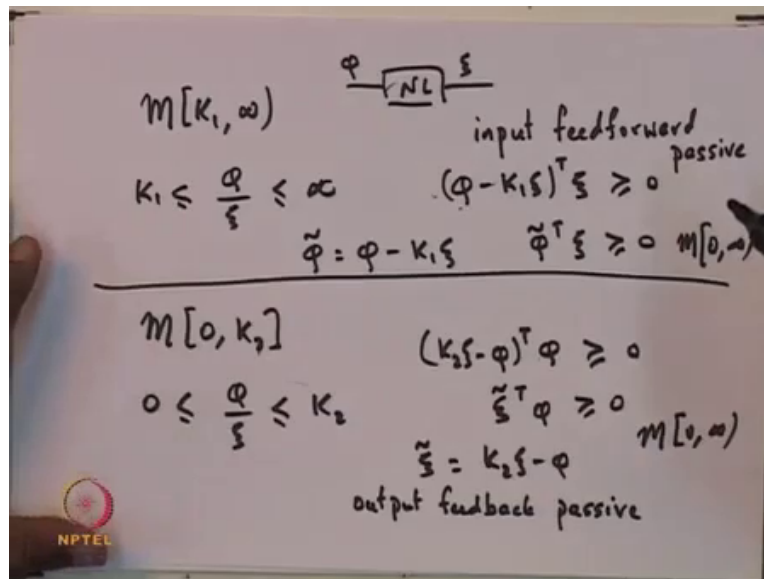 φ NL ξ
m[K₁, ∞)
input feedforward passive
K₁ ≤ φ/ξ ≤ ∝ (φ - K₁ξ)ᵀ ξ ≥ 0
φ̃ = φ - K₁ξ φ̃ᵀ ξ ≥ 0 m[0, ∞)
m[0, K₂]
(K₂ξ - φ)ᵀ φ ≥ 0
0 ≤ φ/ξ ≤ K₂ ξ̃ᵀ φ ≥ 0
m[0, ∞)
ξ̃ = K₂ξ - φ
output feedback passive
NPTEL